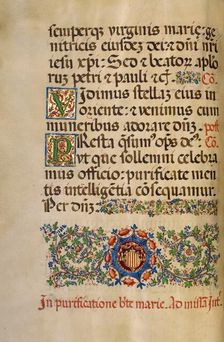 semperq̃ virginis marie: ge
nitricis eiusdẽ dei: ⁊ dñi nrĩ
iesu xp̃i: Sed ⁊ beatoꝝ aplo
rũ petri ⁊ pauli ⁊c̃. Cõ.
Vidimus stellaʒ eius in
oriente: ⁊ venimus cum
muneribus adorare dñʒ. post
cõ.
Presta q̃sum̃ op̃s de᷒:
ut que sollemni celebra
mus officio: purificate men
tis intelligẽtia cõsequamur.
Per dñʒ.
In purificatione bt̃e marie. Ad missã Int.